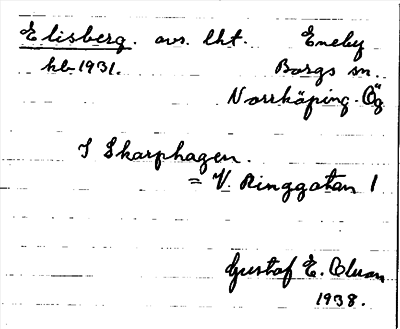 Elisberg. avs. lht. Eneby
hb 1931. Borgs sn.
Norrköping. Ög
I Skarphagen.
= V. Ringgatan 1
Gustaf E. Olsson
1938.